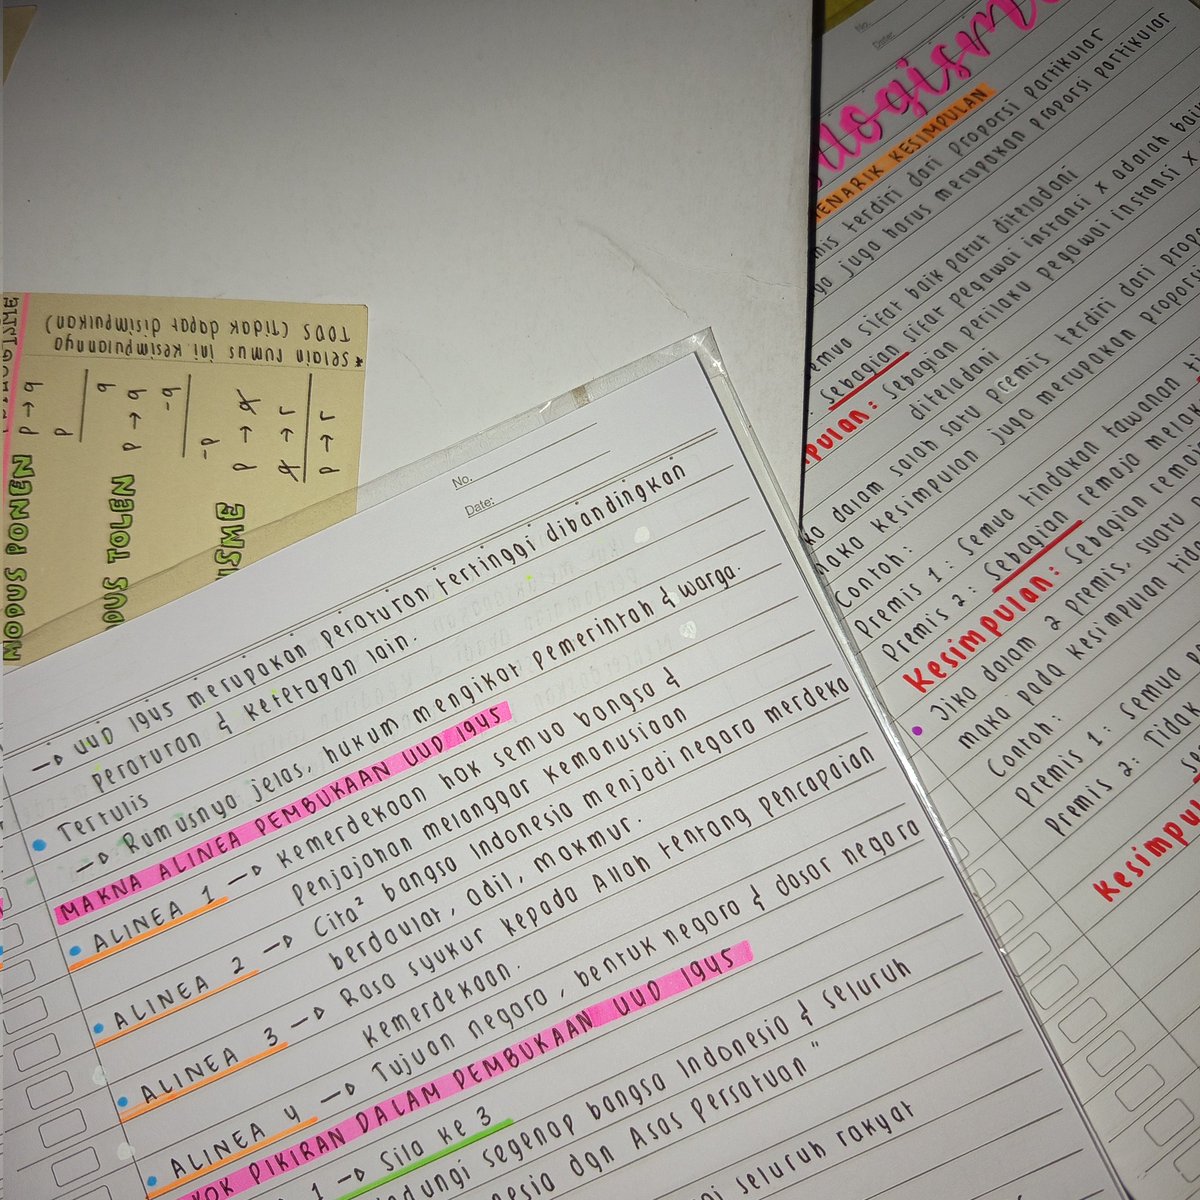 MODUS PONEN
p → q
p
q
DUS TOLEN
p → q
-q
-p
ISME
p → q
q → r
p → r
* selain rumus ini kesimpulannya
TDDS (tidak dapat disimpulkan)
No.
Date:
→ UUD 1945 merupakan peraturan tertinggi dibandingkan
peraturan & ketetapan lain.
• Tertulis
→ Rumusnya jelas, hukum mengikat pemerintah & warga.
MAKNA ALINEA PEMBUKAAN UUD 1945
• ALINEA 1 → Kemerdekaan hak semua bangsa &
penjajahan melanggar kemanusiaan
• ALINEA 2 → Cita² bangsa Indonesia menjadi negara merdeka
berdaulat, adil, makmur.
• ALINEA 3 → Rasa syukur kepada Allah tentang pencapaian
kemerdekaan.
• ALINEA 4 → Tujuan negara, bentuk negara & dasar negara
KOK PIKIRAN DALAM PEMBUKAAN UUD 1945
1 → Sila ke 3
ndungi segenap bangsa Indonesia & seluruh
nesia dgn Asas persatuan"
gi seluruh rakyat
No.
Date:
llogism
MENARIK KESIMPULAN
mis terdiri dari proporsi partikular
ga juga harus merupakan proporsi partikular
emua sifat baik patut diteladani
: Sebagian sifat pegawai instansi x adalah baik
mpulan: Sebagian perilaku pegawai instansi x
diteladani
ka dalam salah satu premis terdiri dari propo
maka kesimpulan juga merupakan propors
Contoh:
Premis 1: Semua tindakan tawanan ti
Premis 2: Sebagian remaja melak
Kesimpulan: Sebagian remaj
• Jika dalam 2 premis, suatu
maka pada kesimpulan tid
Contoh:
Premis 1: Semua pe
Premis 2: Tidak
Se
Kesimpul